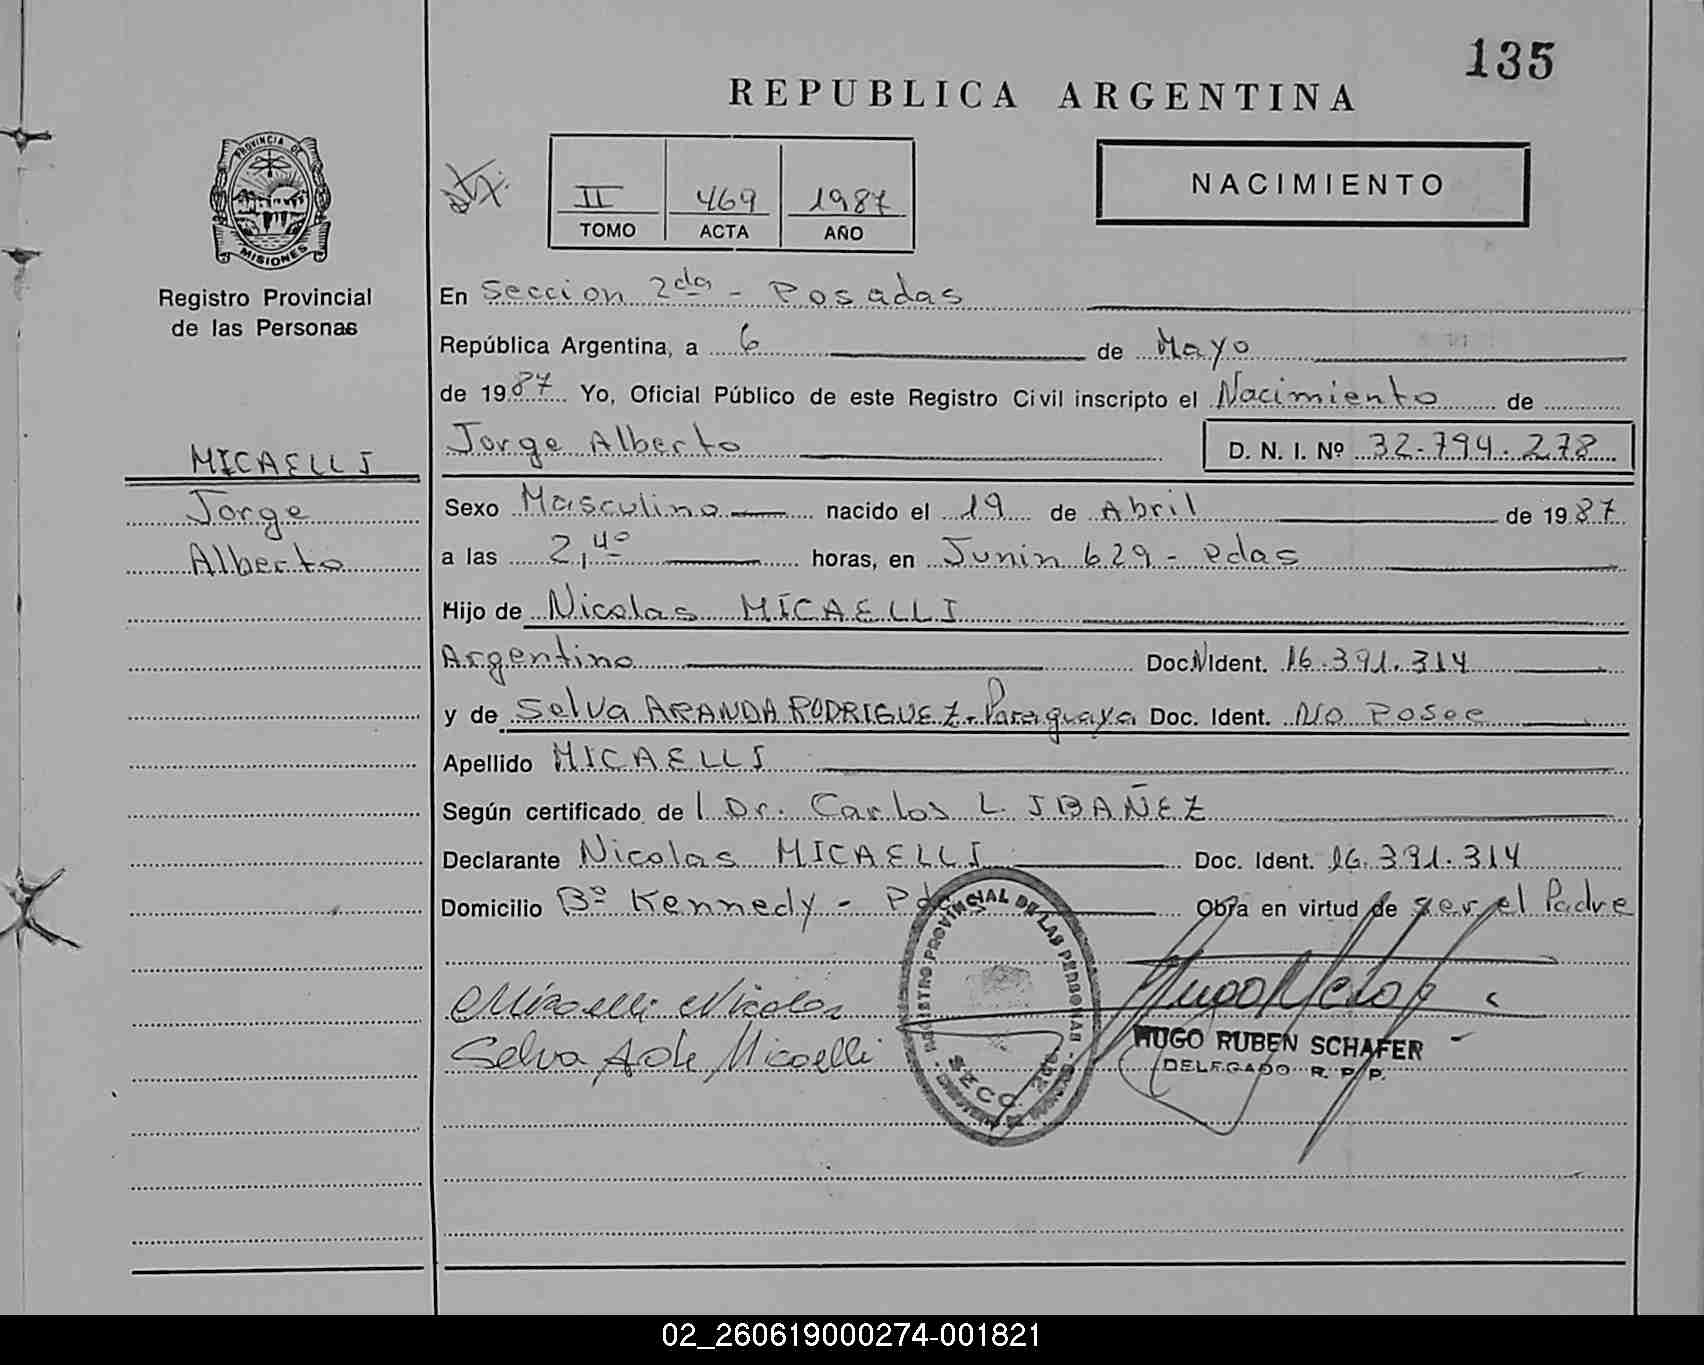 135
REPUBLICA ARGENTINA
PROVINCIA DE
MISIONES
Registro Provincial
de las Personas
II 469 1987
TOMO ACTA AÑO
NACIMIENTO
En Seccion 2da - Posadas
República Argentina, a 6 de Mayo
de 1987 Yo, Oficial Público de este Registro Civil inscripto el Nacimiento de
Jorge Alberto D. N. I. Nº 32.794.278
MICAELLI
Jorge
Alberto
Sexo Masculino nacido el 19 de Abril de 1987
a las 2,40 horas, en Junin 629 - Pdas
Hijo de Nicolas MICAELLI
Argentino Doc. N Ident. 16.391.314
y de Selva ARANDA RODRIGUEZ - Paraguaya Doc. Ident. No Posee
Apellido MICAELLI
Según certificado de l Dr. Carlos L. IBAÑEZ
Declarante Nicolas MICAELLI Doc. Ident. 16.391.314
Domicilio Bº Kennedy - Pdas Obra en virtud de ser el Padre
Micaelli Nicolas
Selva A de Micaelli
REGISTRO PROVINCIAL DE LAS PERSONAS
SECC. 2da
HUGO RUBEN SCHAFER
DELEGADO R. P. P.
02_260619000274-001821